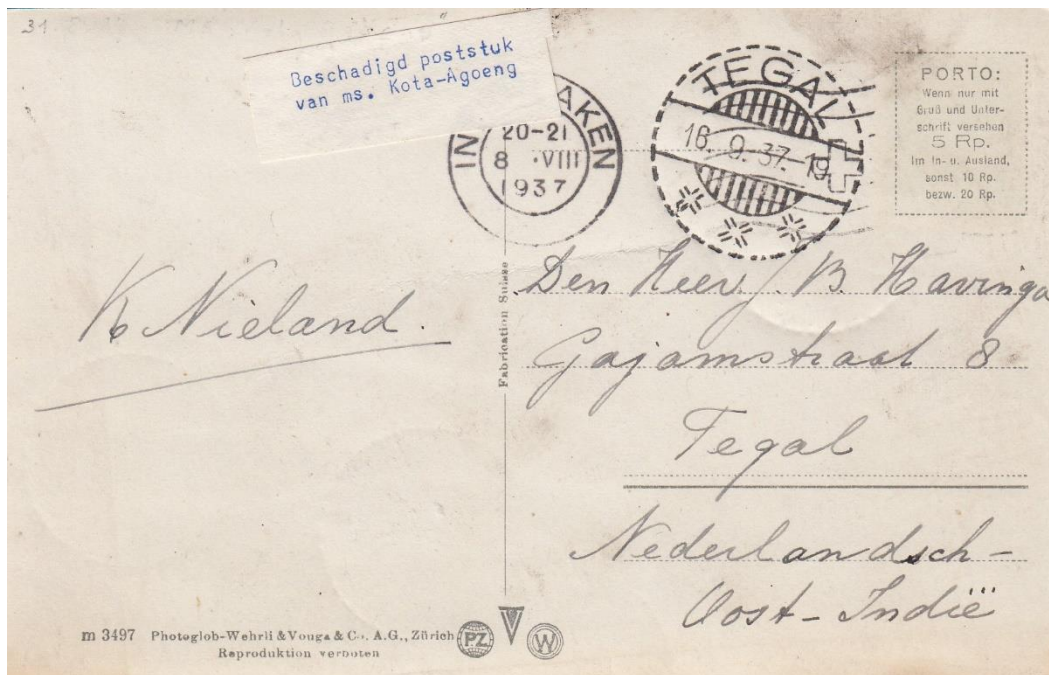 31
Beschadigd poststuk
van ms. Kota-Agoeng
IN AKEN
20-21
8 ·VIII
1937
TEGAL
16. 9. 37.-19
PORTO:
Wenn nur mit
Gruß und Unter-
schrift versehen
5 Rp.
Im In- u. Ausland,
sonst 10 Rp.
bezw. 20 Rp.
K Nieland.
Fabrication Suisse
Den Heer J. B. Havinga
Gajamstraat 8
Tegal
Nederlandsch-
Oost-Indië
m 3497 Photoglob-Wehrli & Vouga & Co. A.G., Zürich
Reproduktion verboten
PZ
W